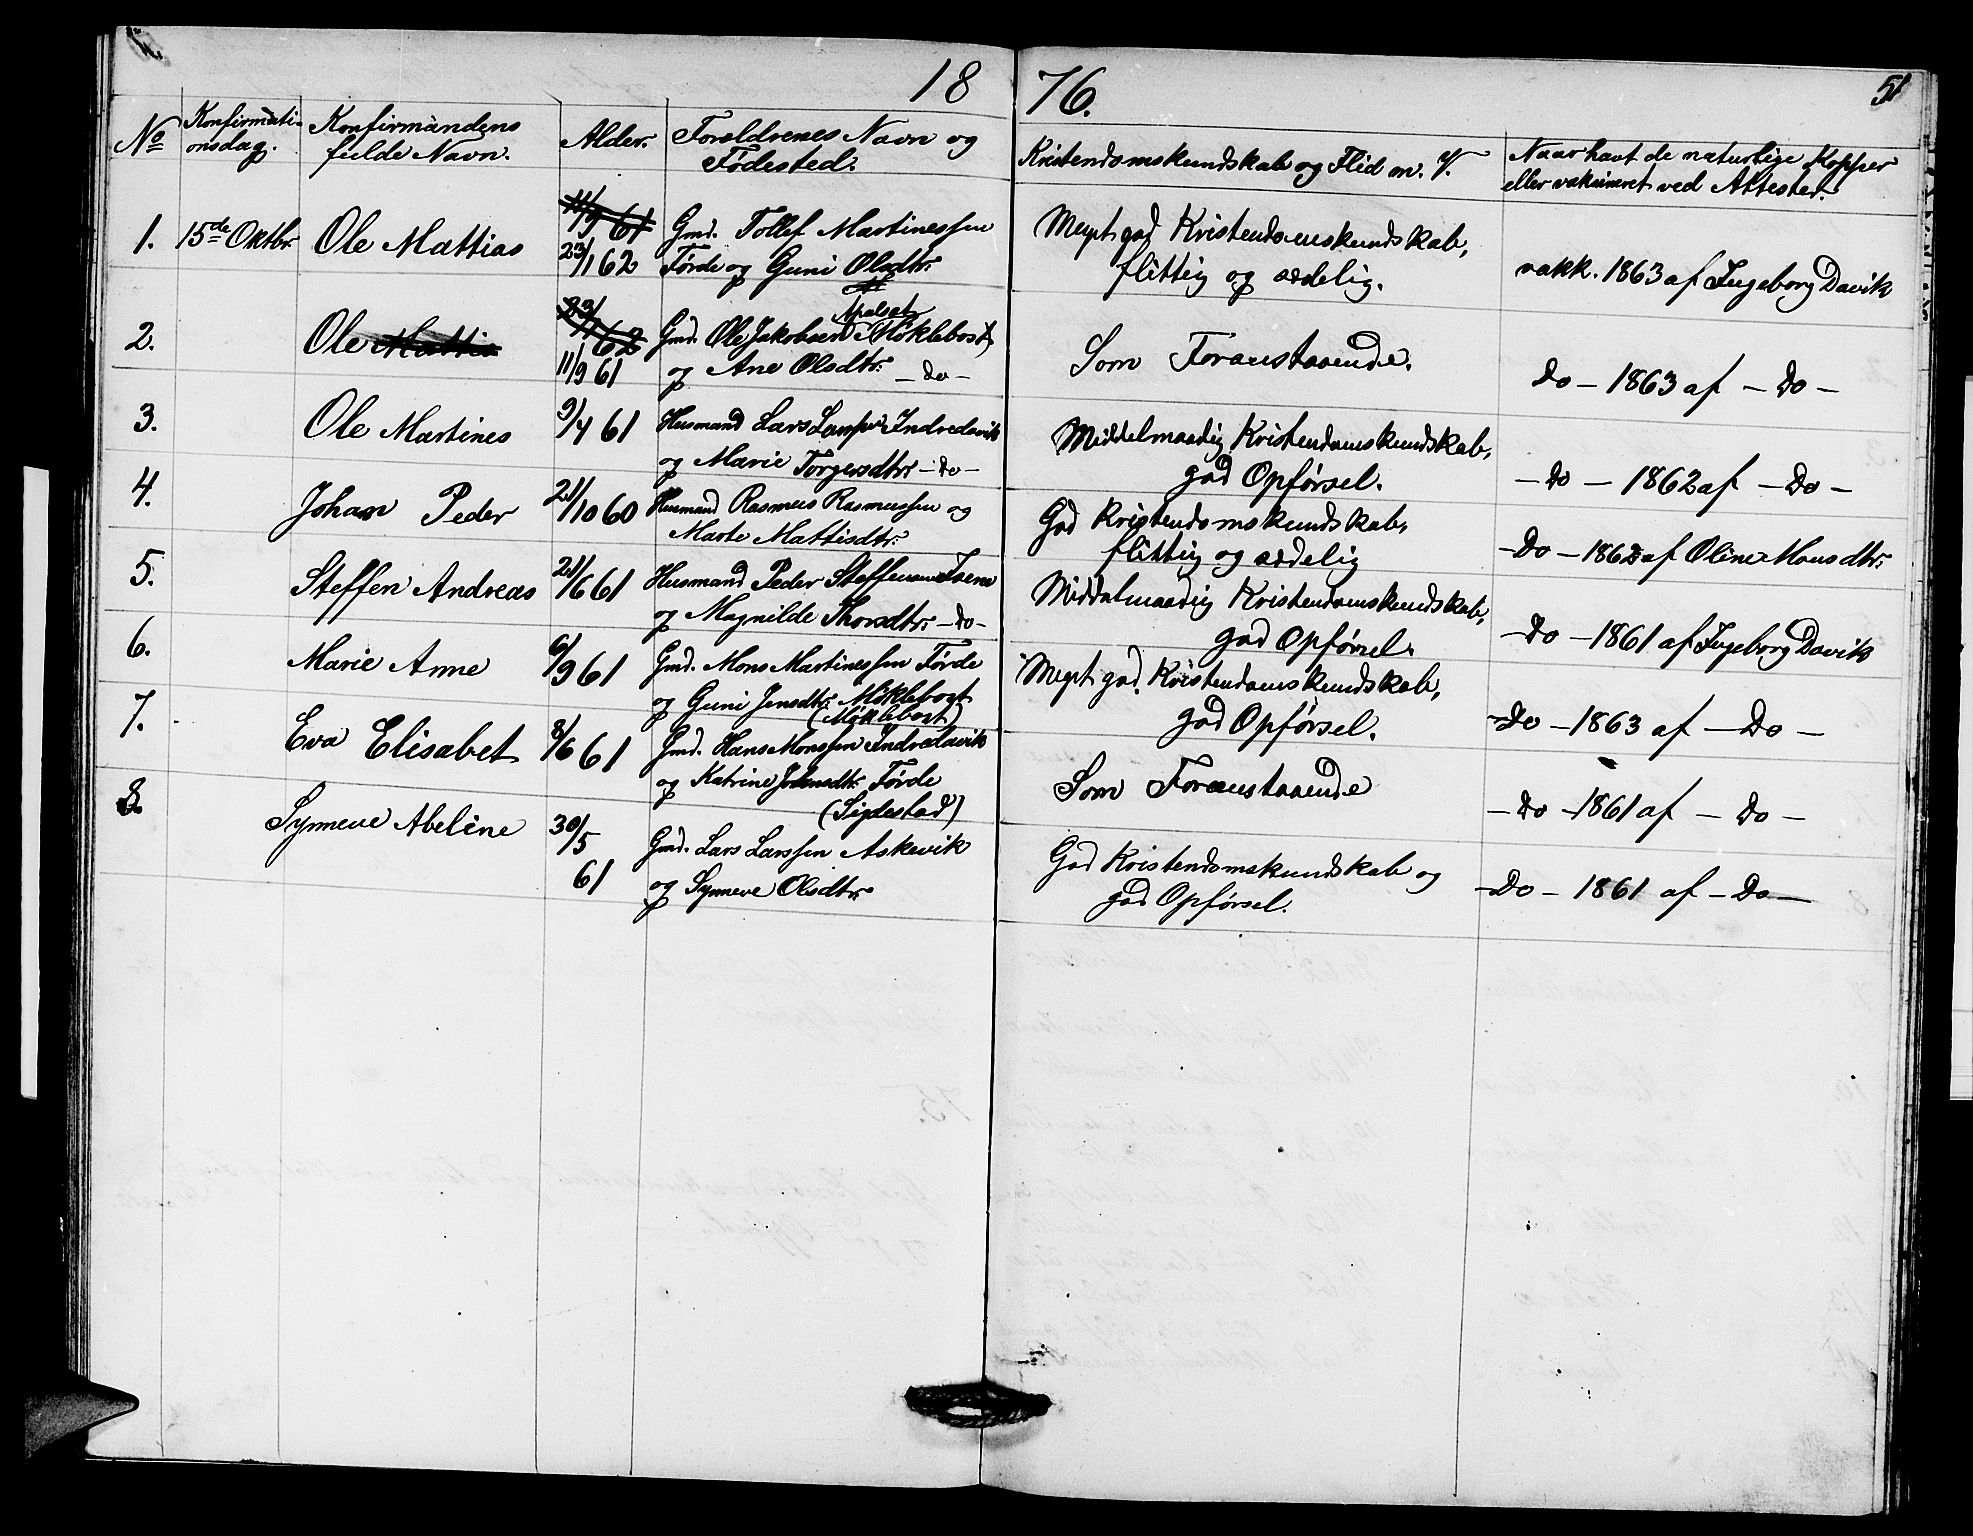 18 76. 51
No Konfirmati-onsdag. Konfirmandens fulde Navn. Alder. Foreldrenes Navn og Fødested. Kristendomskundskab og Flid m. V. Naar havt de naturlige Kopper eller vakcineret ved Attester.
1. 15de Oktbr. Ole Mattias 11/9 61 Gmd. Tollef Martinessen Meget god Kristendomskundskab,
23/1 62 Førde og Guni Olsdtr. flittig og sædelig. vakk. 1863 af Ingeborg Davik
2. Ole Mattis 23/1 62 Gmd. Ole Jakobsen Apalset (Myklebost) Som Foranstaaende.
11/9 61 og Ane Olsdtr. - do - do - 1863 af - do -
3. Ole Martines 9/4 61 Husmand Lars Indredavik Middelmaadig Kristendomskundskab,
og Marie Torgersdtr. - do - god Opførsel. - do - 1862 af - do -
4. Johan Peder 21/10 60 Husmand Rasmus Rasmussen og God Kristendomskundskab,
Marte Mattisdtr. flittig og sædelig - Do - 1862 af Oline Monsdtr.
5. Steffen Andreas 21/6 61 Husmand Peder Steffensen Middelmaadig Kristendomskundskab,
og Magnilde Thorsdtr. - do - god Opførsel. - Do - 1861 af Ingeborg Davik
6. Marie Anne 6/9 61 Gmd. Mons Martinessen Førde Meget god Kristendomskundskab,
og Guni Jensdtr. Møklebost (Møklebost) god Opførsel. - Do - 1863 af - Do -
7. Eva Elisabet 8/6 61 Gmd. Hans Monssen Indredavik Som Foranstaaende
og Katrine Johansdtr. Førde - Do - 1861 af - Do -
8. Synneve Abeline 30/5 (Sigdestad)
61 Gmd. Lars Larssen Askevik God Kristendomskundskab og
og Synneve Olsdtr. god Opførsel. - Do - 1861 af - Do -